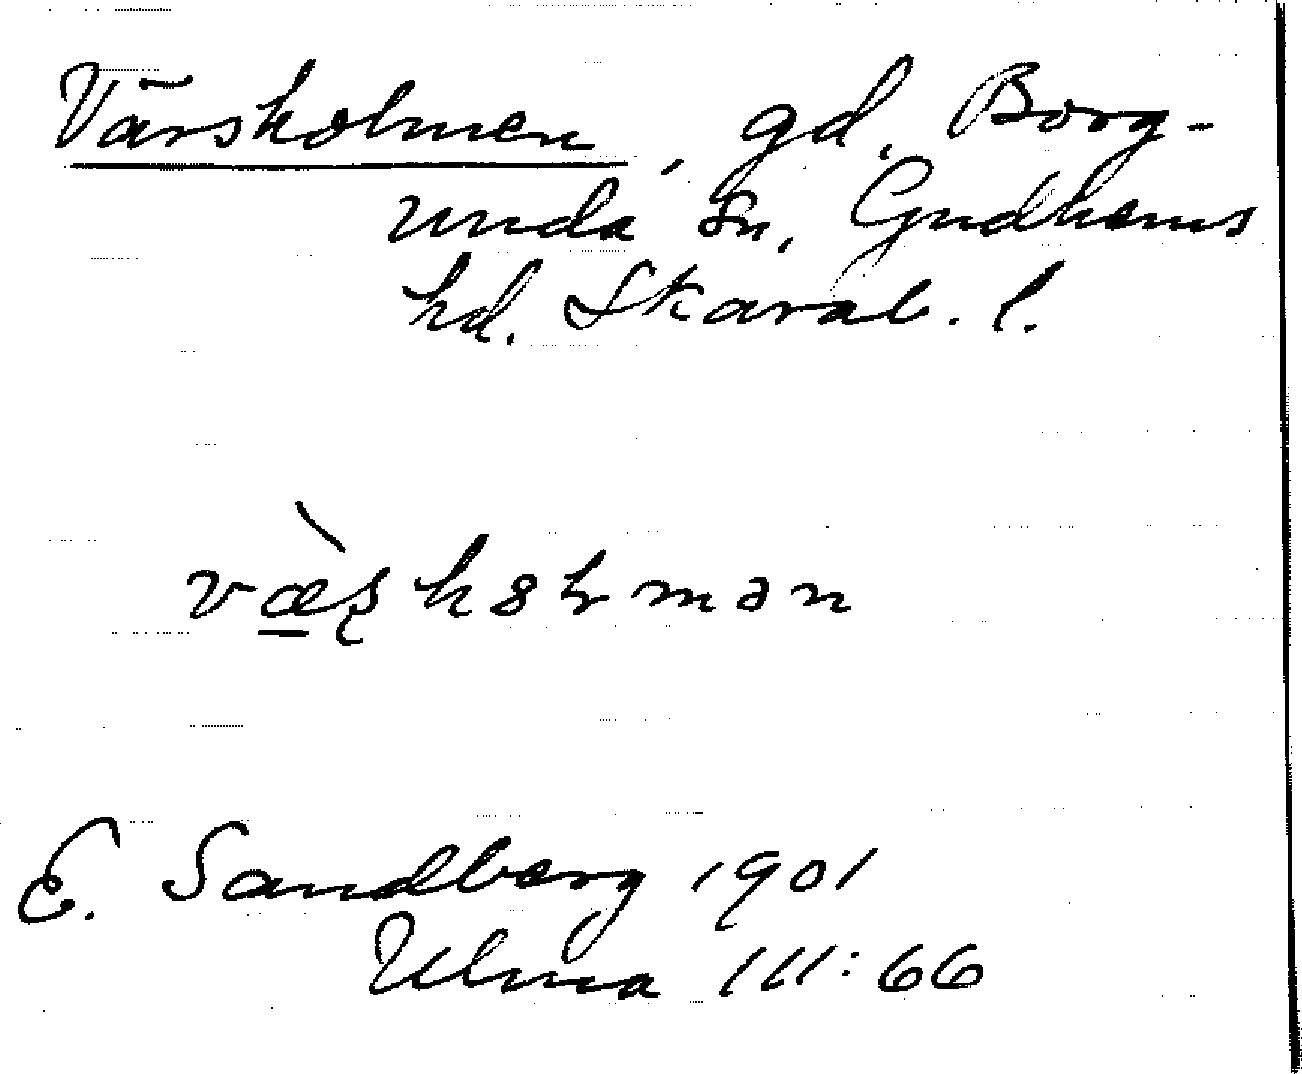 Värsholmen, gd, Borg-
unda sn, Gudhems
hd. Skarab. l.
væ̱̀ʂhȣlmən
E. Sandberg 1901
Ulma 111:66